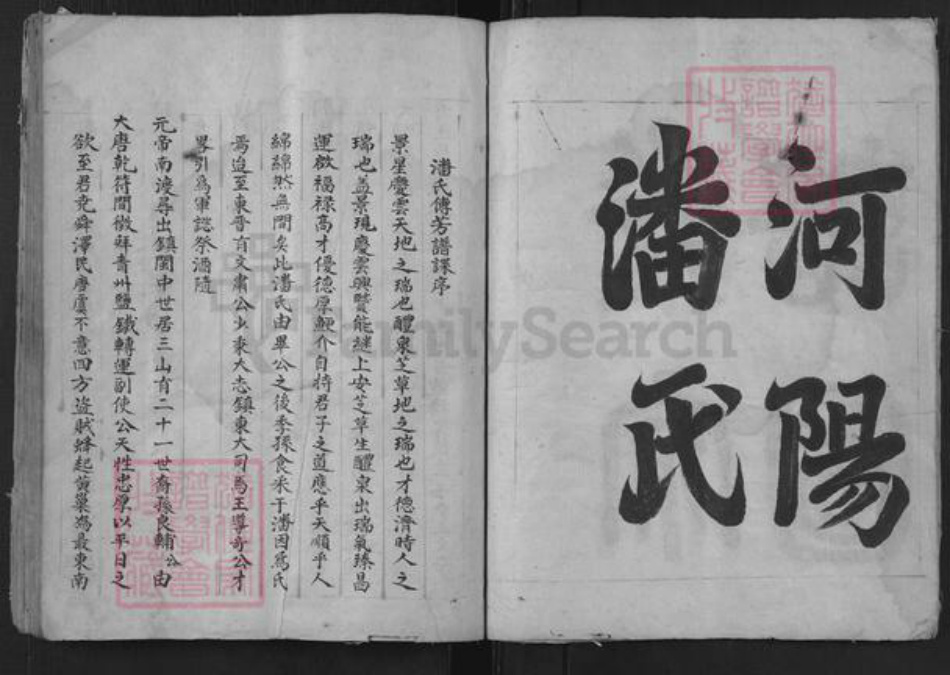 河陽
潘氏
潘氏傳芳譜諜序
景星慶雲天地之瑞也醴泉芝草地之瑞也才德濟時人之
瑞也蓋景現慶雲興賢能継上安芝草生醴泉出瑞氣臻昌
運啟福禄高才優德厚鯁介自持君子之道應乎天順乎人
綿綿然無間矣此潘氏由畢公之後季孫食采于潘因為氏
焉迨至東晋有文肅公少秉大志鎮東大司馬王導奇公才
畧引為軍諮祭酒隨
元帝南渡尋出鎮閩中世居三山有二十一世裔孫良輔公由
大唐乾符間徴辟青州鹽鐵轉運副使公天性忠厚以平日之
欲至君堯舜澤民唐虞不意四方盜賊蜂起黄巢為最東南
FamilySearch